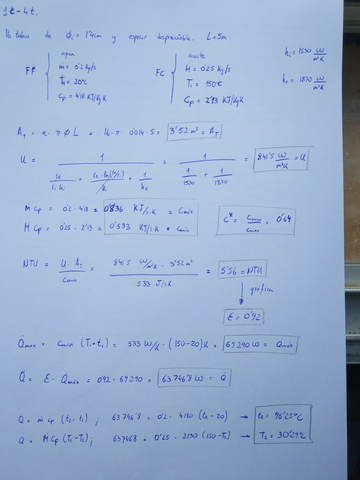 1t - 4t.
16 tubos de φi = 1'4cm y espesor despreciable. L=5m
FF { agua
ṁ = 0'2 kg/s
t1 = 20ºC
Cp = 4'18 KJ/kg K
FC { aceite
M = 0'25 kg/s
T1 = 150ºC
Cp = 2'13 KJ/kg K
hi = 1530 W/m²K
ho = 1870 W/m²K
AT = n · π Ø L = 16 · π · 0'014 · 5 = 3'52 m² = AT
U = 1 / ( + + 1/ho) = 1 / (1/1530 + 1/1870) = 841'5 W/m²K = U
ṁ Cp = 0'2 · 4'18 = 0'836 KJ/s·K =
M Cp = 0'25 · 2'13 = 0'533 KJ/s·K = Cmin
C* = Cmin/Cmax = 0'64
NTU = U · AT / Cmin = 841'5 W/m²K · 3'52 m² / 533 J/s·K = 5'56 = NTU
gráfica
E = 0'92
Q̇max = Cmin (T1 - t1) = 533 W/K · (150-20)K = 69.290 W = Q̇max
Q̇ = E · Q̇max = 0'92 · 69.290 = 63.746'8 W = Q̇
Q = ṁ Cp (t2 - t1) ; 63.746'8 = 0'2 · 4180 (t2 - 20) → t2 = 96'25ºC
Q = M Cp (T1 - T2) ; 63746'8 = 0'25 · 2130 (150 - T2) → T2 = 30'29ºC